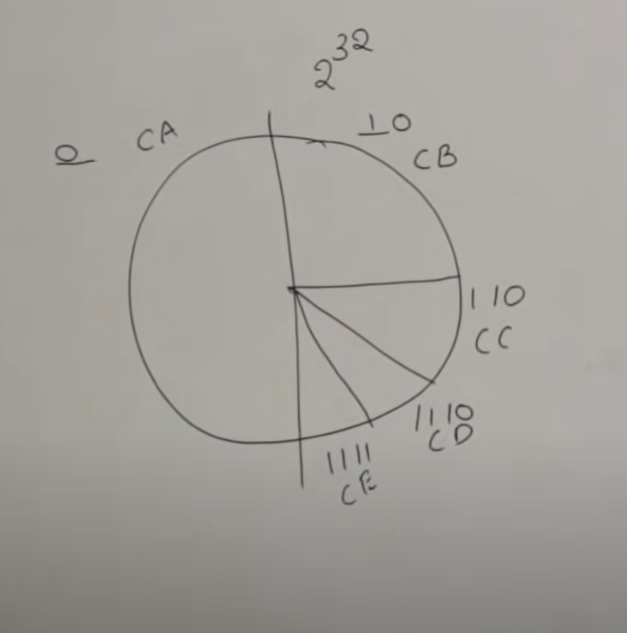 2^32
0 CA
10
CB
110
CC
1110
CD
1111
CE